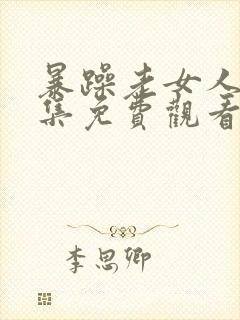 暴躁走女人
集免費觀看
李思卿